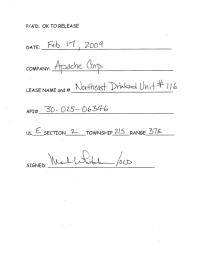 P/A'D. OK TO RELEASE
DATE: Feb. 17, 2009
COMPANY: Apache Corp.
LEASE NAME and # Northeast Drinkard Unit # 116
API# 30-025-06346
UL E SECTION 2 TOWNSHIP 21S RANGE 37E
SIGNED: /OCD